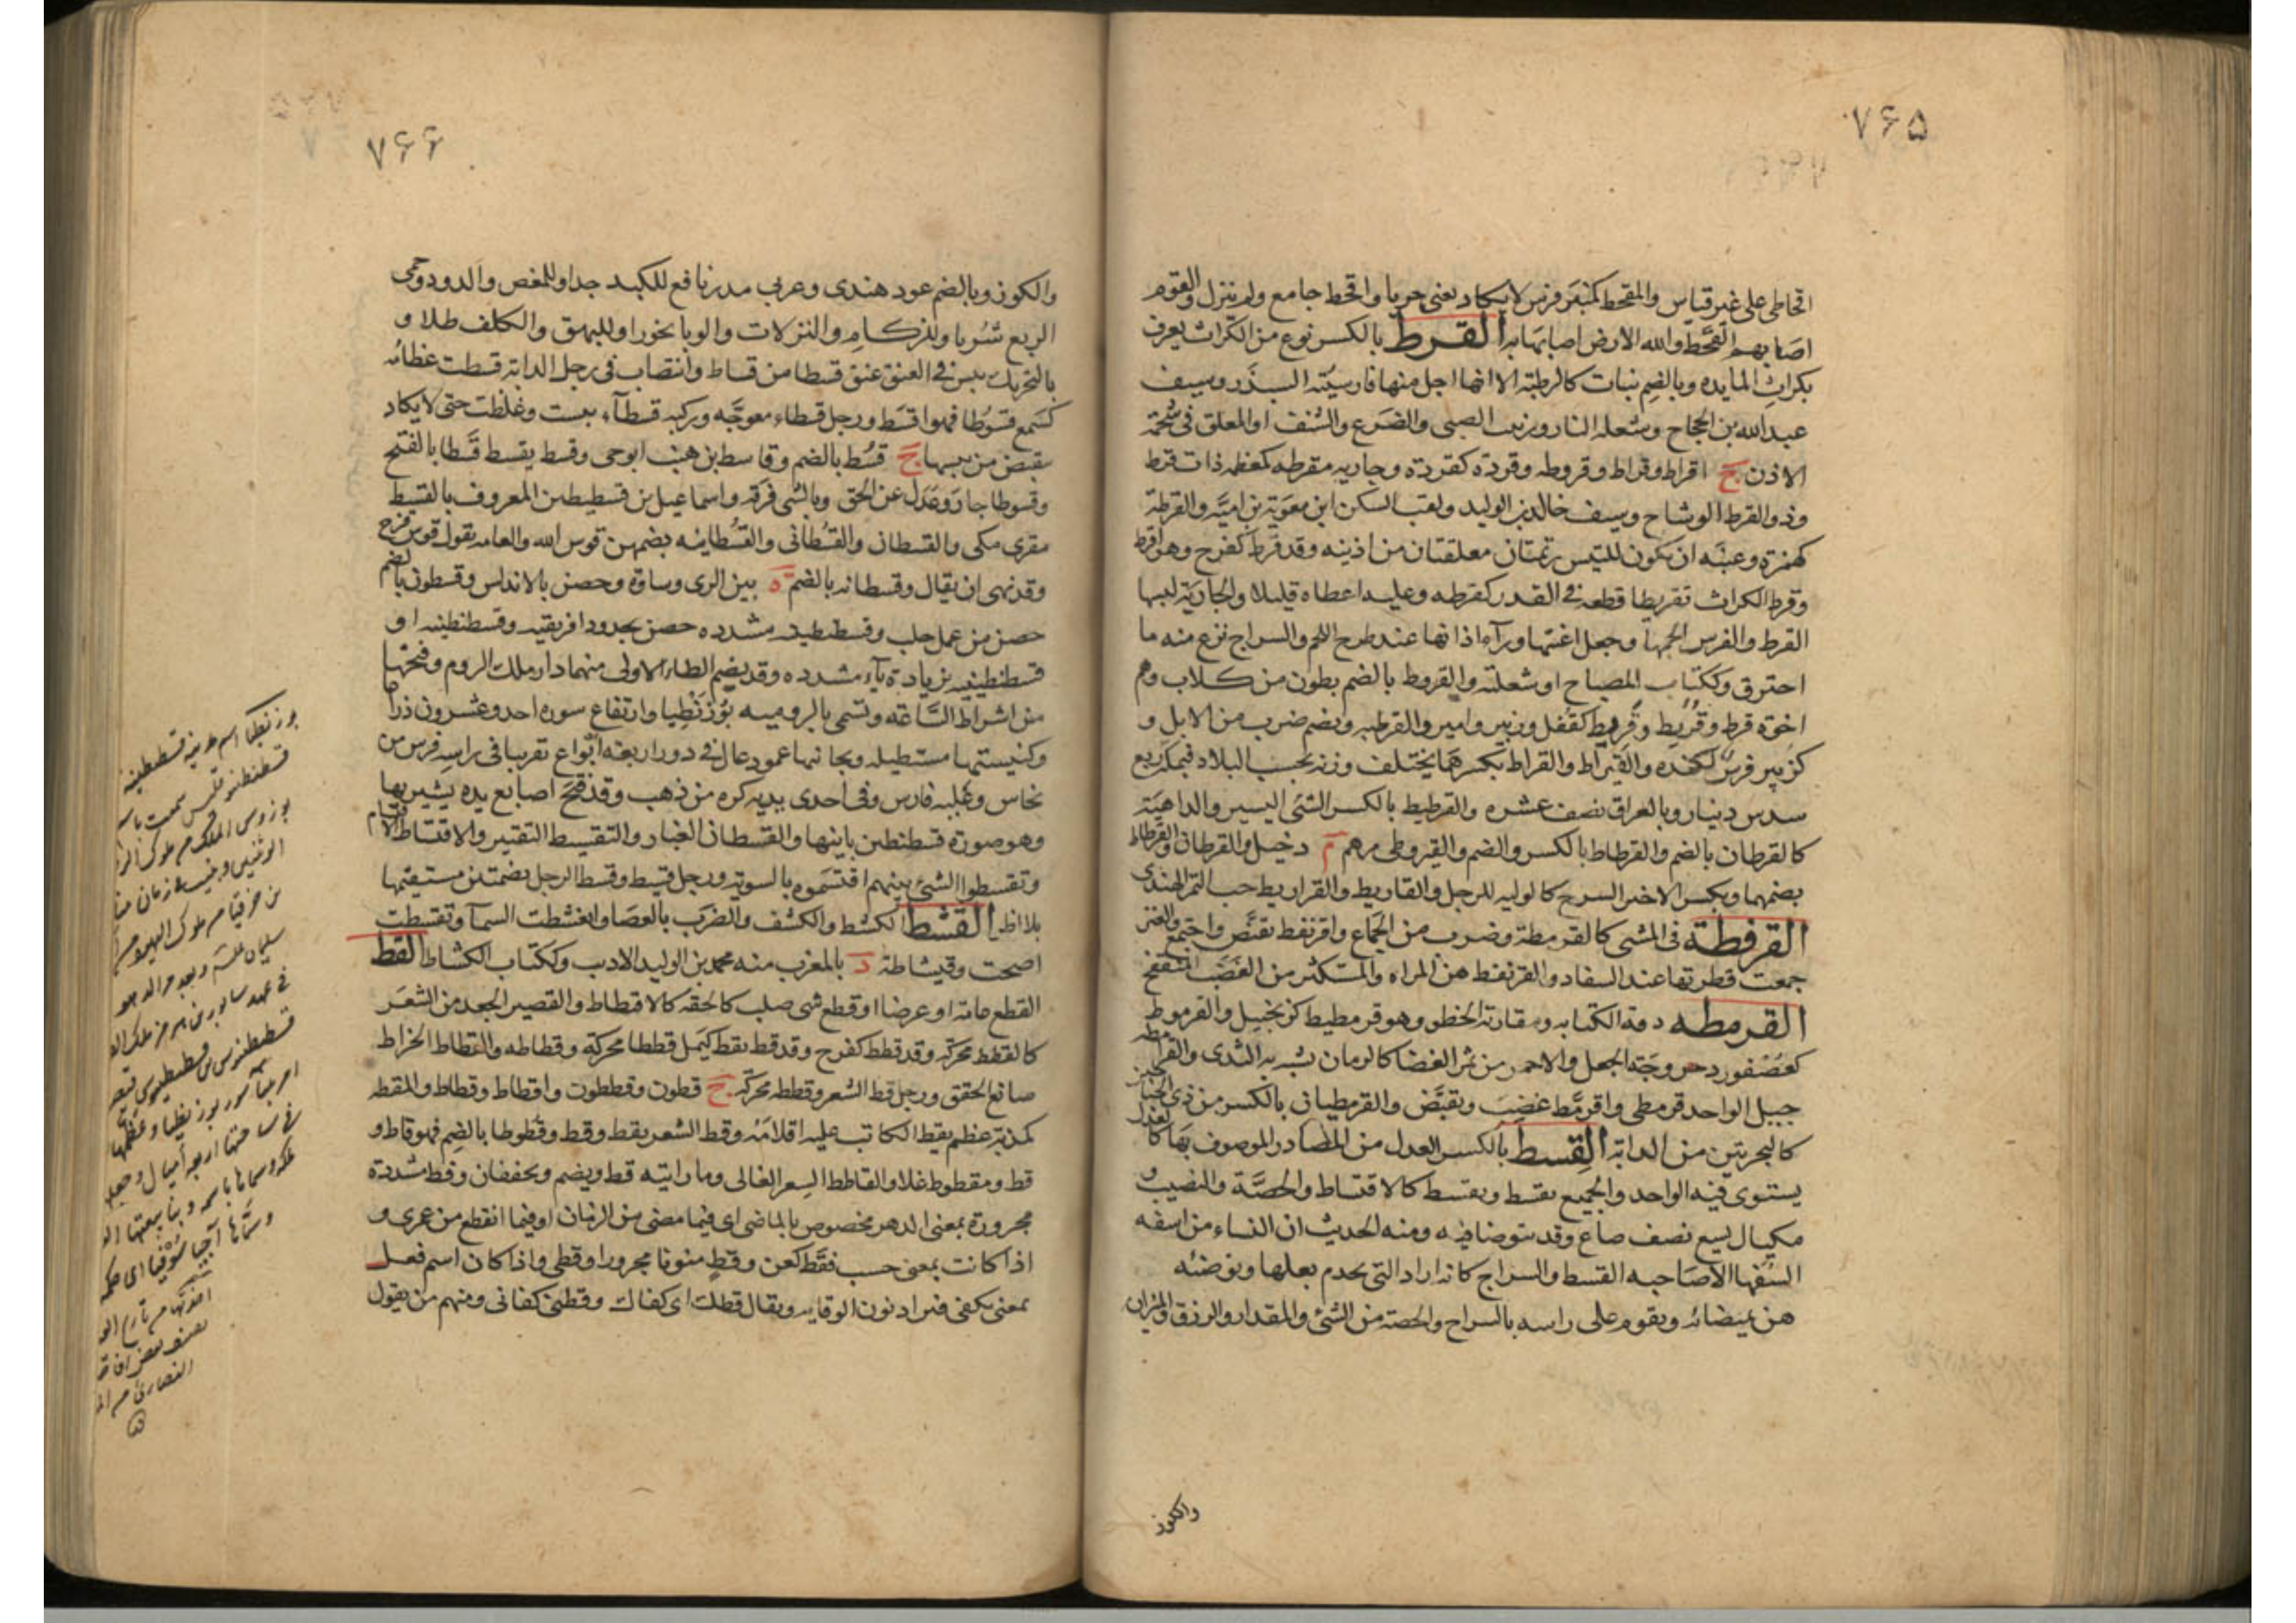 ۷۶۵
اقحاطى على غير قياس والمقحط كمنبر فرس لا يكاد يعنى جريا واقحط جامع ولم ينزل والقوم
اصابهم القحط والله الارض اصابها به القرط بالكسر نوع من الكراث يعرف
بكراث المايده وبالضم نبات كالرطبة الا انها اجل منها فارسيته الشبذر وسيف
عبد الله بن الحجاج وشعلة النار وزبيب الصبى والضرع والشنف او المعلق فى شحمة
الاذن ج اقراط وقراط وقروطه وقردة كقردة وجاريه مقرطه كمعظمه ذات قرط
وذو القرط الوشاح وسيف خالد بن الوليد ولقب السكن ابن معوية بن امية والقرطة
كهمزة وعنبه ان يكون للتيس زنمتان معلقتان من اذنيه وقد قرط كفرح وهو اقرط
وقرط الكراث تقريطا قطعه فى القدر كقرطه وعليه اعطاه قليلا والجارية البسها
القرط والفرس الجمها وجعل اعنتها ورآء اذانها عند طرح اللجم والسراج نزع منه ما
احترق وككتاب المصباح او شعلته والقروط بالضم بطون من كلاب وهم
اخوة قرط وقريط وقريط كقفل وزبير وامير والقرطيه ويضم ضرب من الابل و
كزبير فرس لكنده والقيراط والقراط بكسرهما يختلف وزنه بحسب البلاد فبمكة ربع
سدس دينار وبالعراق نصف عشره والقرطيط بالكسر الشئ اليسير والداهية
كالقرطان بالضم والقرطاط بالكسر والضم والقيروطى مرهم م دخيل والقرطان والقرطاط
بضمهما وبكسر الاخير السرج كالوليه للرحل والقاريط والقراريط حب التمر الهندى
القرفطة فى المشى كالقرمطة وضرب من الجماع واقرنفط تقبض واجتمع والعنز
جمعت قطريها عند السفاد والقرنفط هن المراه والمتكثر من الغضب المنتفخ
القرمطه دقة الكتابه ومقاربة الخطو وهو قرمطيط كزنجبيل والقرموط
كعصفور دحروجة الجعل والاحمر من ثمر الغضا كالرمان يشبه به الثدى والقرامطه
جيل الواحد قرمطى واقرمط غضب وتقبض والقرمطيان بالكسر من ذى الجناحين
كالنخرتين من الدابة القسط بالكسر العدل من المصادر الموصوف بها كالعدل
يستوى فيه الواحد والجميع يقسط ويقسط كالاقتساط والحصة والنصيب و
مكيال يسع نصف صاع وقد يتوضا فيه ومنه الحديث ان النساء من اسفه
السفها الا صاحبه القسط والسراج كانه اراد التى تخدم بعلها وتوضئه
من ميضائه وتقوم على راسه بالسراج والحصة من الشئ والمقدار والرزق والميزان
والكوز
۷۶۶
والكوز وبالضم عود هندى وعربى مدر نافع للكبد جدا وللمغص والدود وحمى
الربع شربا وللزكام والنزلات والوبا بخورا وللبهق والكلف طلا و
بالتحريك يبس فى العنق عنق قسطا من قساط وانتصاب فى رجل الدابة قسطت عظامه
كسمع قسوطا فهو اقسط ورجل قسطاء معوجه وركبه قسطآء يبست وغلظت حتى لا يكاد
ينقبض من يبسها ج قسط بالضم وقاسط بن هنب ابو حى وقسط يقسط قسطا بالفتح
وقسوطا جار وعدل عن الحق وبالشئ فرقه واسماعيل بن قسطنطين المعروف بالقسط
مقرى مكى والقسطان والقسطانى والقسطانيه بضمهن قوس الله والعامه تقول قوس قزح
وقد نهى ان يقال وقسطانه بالضم ة بين الرى وساوة وحصن بالاندلس وقسطون بالضم
حصن من عمل حلب وقسنطينه مشدده حصن بحدود افريقيه وقسطنطينه او
قسطنطينيه بزيادة ياء مشدده وقد يضم الطاء الاولى منهما دار ملك الروم وفتحها
من اشراط الساعه وتسمى بالروميه بوزنطيا وارتفاع سوره احد وعشرون ذراعا
وكنيستها مستطيله وبجانبها عمود عال فى دور اربعة ابواع تقريبا فى راسه فرس من
نحاس وعليه فارس وفى احدى يديه كره من ذهب وقد فتح اصابع يده يشير بها
وهو صورة قسطنطين بانيها والقسطان الغبار والتقسيط التقتير والاقتساط الاقتسام
وتقسطوا الشئ بينهم اقتسموه بالسويه ورجل قسيط وقسط الرجل بضمتين مستقيمها
بلا اطر القشط الكشط والكشف والضرب بالعصا وانقشطت السمآ وتقشطت
اصحت وقيشاطة د بالمغرب منه محمد بن الوليد الاديب وككتاب الكشاط القط
القطع عامة او عرضا او قطع شى صلب كالحقه كالاقتطاط والقصير الجعد من الشعر
كالقطط محركة وقد قطط كفرح وقد قط يقط كيمل قططا محركة وقطاطه والقطاط الخراط
صانع الحقق ورجل قط الشعر وقططه محركة ج قطون وقططون واقطاط وقطاط والمقطه
كمذبة عظم يقط الكاتب عليه اقلامه وقط السعر يقط وقط وقطوطا بالضم فهو قاط و
قط ومقطوط غلا والقاطط السعر الغالى وما رايته قط ويضم ويخففان وقط مشددة
مجرورة بمعنى الدهر مخصوص بالماضى اى فيما مضى من الزمان او فيما انقطع من عمرى و
اذا كانت بمعنى حسب فقط كعن وقط منونا مجرورا وقطى واذا كان اسم فعل
بمعنى يكفى فتزاد نون الوقايه ويقال قطك اى كفاك وقطنى كفانى ومنهم من يقول
بوزنطيا اسم مدينة قسطنطينية